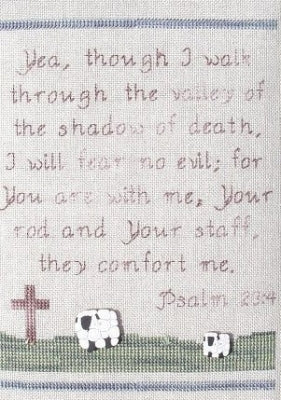 Yea, though I walk
through the valley of
the shadow of death,
I will fear no evil; for
You are with me, Your
rod and Your staff,
they comfort me.
Psalm 23:4